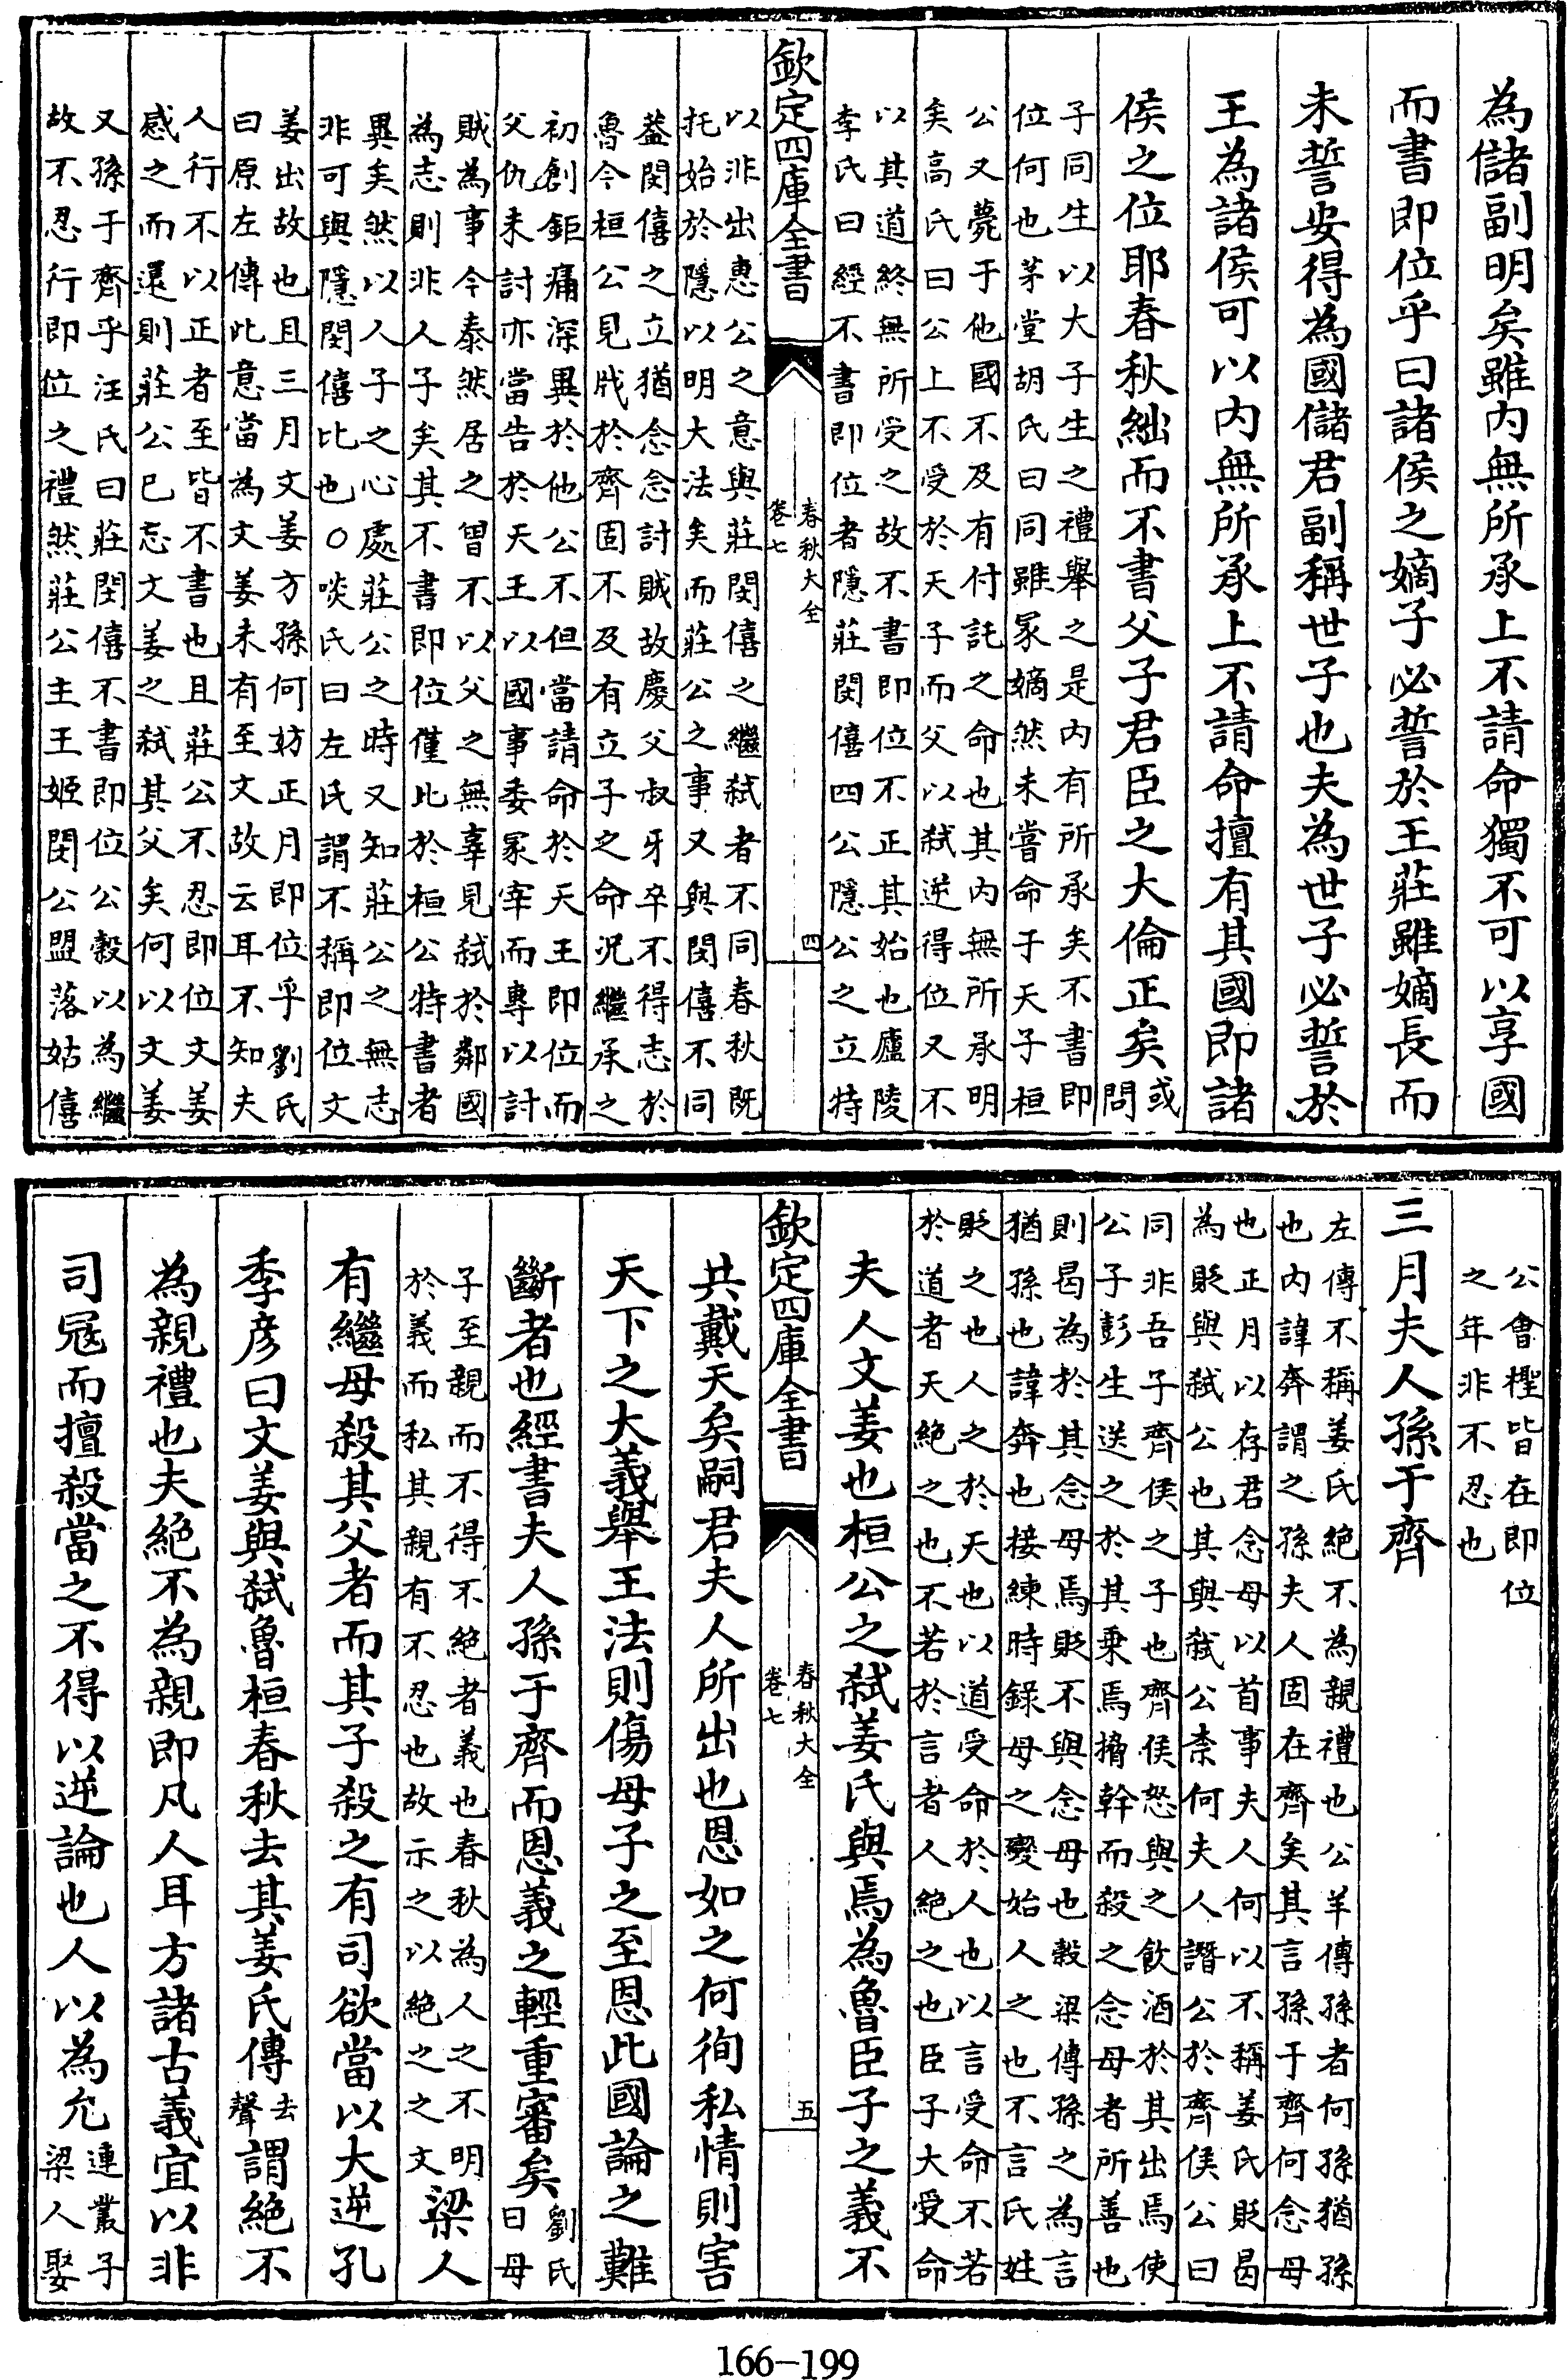 為儲副明矣雖内無所承上不請命獨不可以享國
而書即位乎曰諸侯之嫡子必誓於王莊雖嫡長而
未誓安得為國儲君副稱世子也夫為世子必誓於
王為諸侯可以内無所承上不請命擅有其國即諸
侯之位耶春秋絀而不書父子君臣之大倫正矣或問
子同生以大子生之禮舉之是内有所承矣不書即
位何也茅堂胡氏曰同雖冢嫡然未嘗命于天子桓
公又薨于他國不及有付託之命也其内無所承明
矣高氏曰公上不受於天子而父以弑逆得位又不
以其道終無所受之故不書即位不正其始也廬陵
李氏曰經不書即位者隱莊閔僖四公隱公之立特
欽定四庫全書
春秋大全
卷七
四
以非出惠公之意與莊閔僖之繼弑者不同春秋既
托始於隱以明大法矣而莊公之事又與閔僖不同
蓋閔僖之立猶念念討賊故慶父叔牙卒不得志於
魯今桓公見戕於齊固不及有立子之命況繼承之
初創鉅痛深異於他公不但當請命於天王即位而
父仇未討亦當告於天王以國事委冢宰而專以討
賊為事今泰然居之曾不以父之無辜見弑於鄰國
為志則非人子矣其不書即位僅比於桓公特書者
異矣然以人子之心處莊公之時又知莊公之無志
非可與隱閔僖比也○啖氏曰左氏謂不稱即位文
姜出故也且三月文姜方孫何妨正月即位乎劉氏
曰原左傳此意當為文姜未有至文故云耳不知夫
人行不以正者至皆不書也且莊公不忍即位文姜
感之而還則莊公已忘文姜之弑其父矣何以文姜
又孫于齊乎汪氏曰莊閔僖不書即位公穀以為繼
故不忍行即位之禮然莊公主王姬閔公盟落姑僖
公會檉皆在即位
之年非不忍也
三月夫人孫于齊
左傳不稱姜氏絶不為親禮也公羊傳孫者何孫猶孫
也内諱奔謂之孫夫人固在齊矣其言孫于齊何念母
也正月以存君念母以首事夫人何以不稱姜氏貶曷
為貶與弑公也其與弑公柰何夫人譖公於齊侯公曰
同非吾子齊侯之子也齊侯怒與之飲酒於其出焉使
公子彭生送之於其乗焉搚幹而殺之念母者所善也
則曷為於其念母焉貶不與念母也穀梁傳孫之為言
猶孫也諱奔也接練時錄母之變始人之也不言氏姓
貶之也人之於天也以道受命於人也以言受命不若
於道者天絶之也不若於言者人絶之也臣子大受命
夫人文姜也桓公之弑姜氏與焉為魯臣子之義不
欽定四庫全書
春秋大全
卷七
五
共戴天矣嗣君夫人所出也恩如之何徇私情則害
天下之大義舉王法則傷母子之至恩此國論之難
斷者也經書夫人孫于齊而恩義之輕重審矣劉氏曰母
子至親而不得不絶者義也春秋為人之不明
於義而私其親有不忍也故示之以絶之之文梁人
有繼母殺其父者而其子殺之有司欲當以大逆孔
季彦曰文姜與弑魯桓春秋去其姜氏傳去聲謂絶不
為親禮也夫絶不為親即凡人耳方諸古義宜以非
司冦而擅殺當之不得以逆論也人以為允連叢子梁人娶
166-199